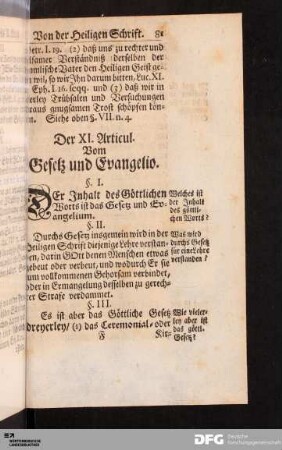 Von der Heiligen Schrift. 81
Petr. I. 19. (2) daß uns zu rechter und
samer Verständniß derselben der
himmlische Vater den Heiligen Geist ge-
ben will, so wir Ihn darum bitten, Luc. XI.
Eph. I. 16. seqq. und (3) daß wir in
allerley Trübsalen und Versuchungen
daraus gnugsamen Trost schöpfen kön-
nen. Siehe oben §. VII. n. 4.
Der XI. Articul.
Vom
Gesetz und Evangelio.
§. I.
Der Inhalt des Göttlichen
Worts ist das Gesetz und Ev-
angelium.
Welches ist
der Inhalt
des göttli-
chen Worts?
§. II.
Durchs Gesetz insgemein wird in der
Heiligen Schrift diejenige Lehre verstan-
den, darin GOtt denen Menschen etwas
gebeut oder verbeut, und wodurch Er sie
zum vollkommenen Gehorsam verbindet,
oder in Ermangelung desselben zu gerech-
ter Strafe verdammet.
Was wird
durchs Gesetz
für eine Lehre
verstanden?
§. III.
Es ist aber das Göttliche Gesetz
dreyerley/ (1) das Ceremonial- oder
Wie vieler-
ley aber ist
das göttl.
Gesetz?
F Kir-
WÜRTTEMBERGISCHE
LANDESBIBLIOTHEK
DFG Deutsche
Forschungsgemeinschaft